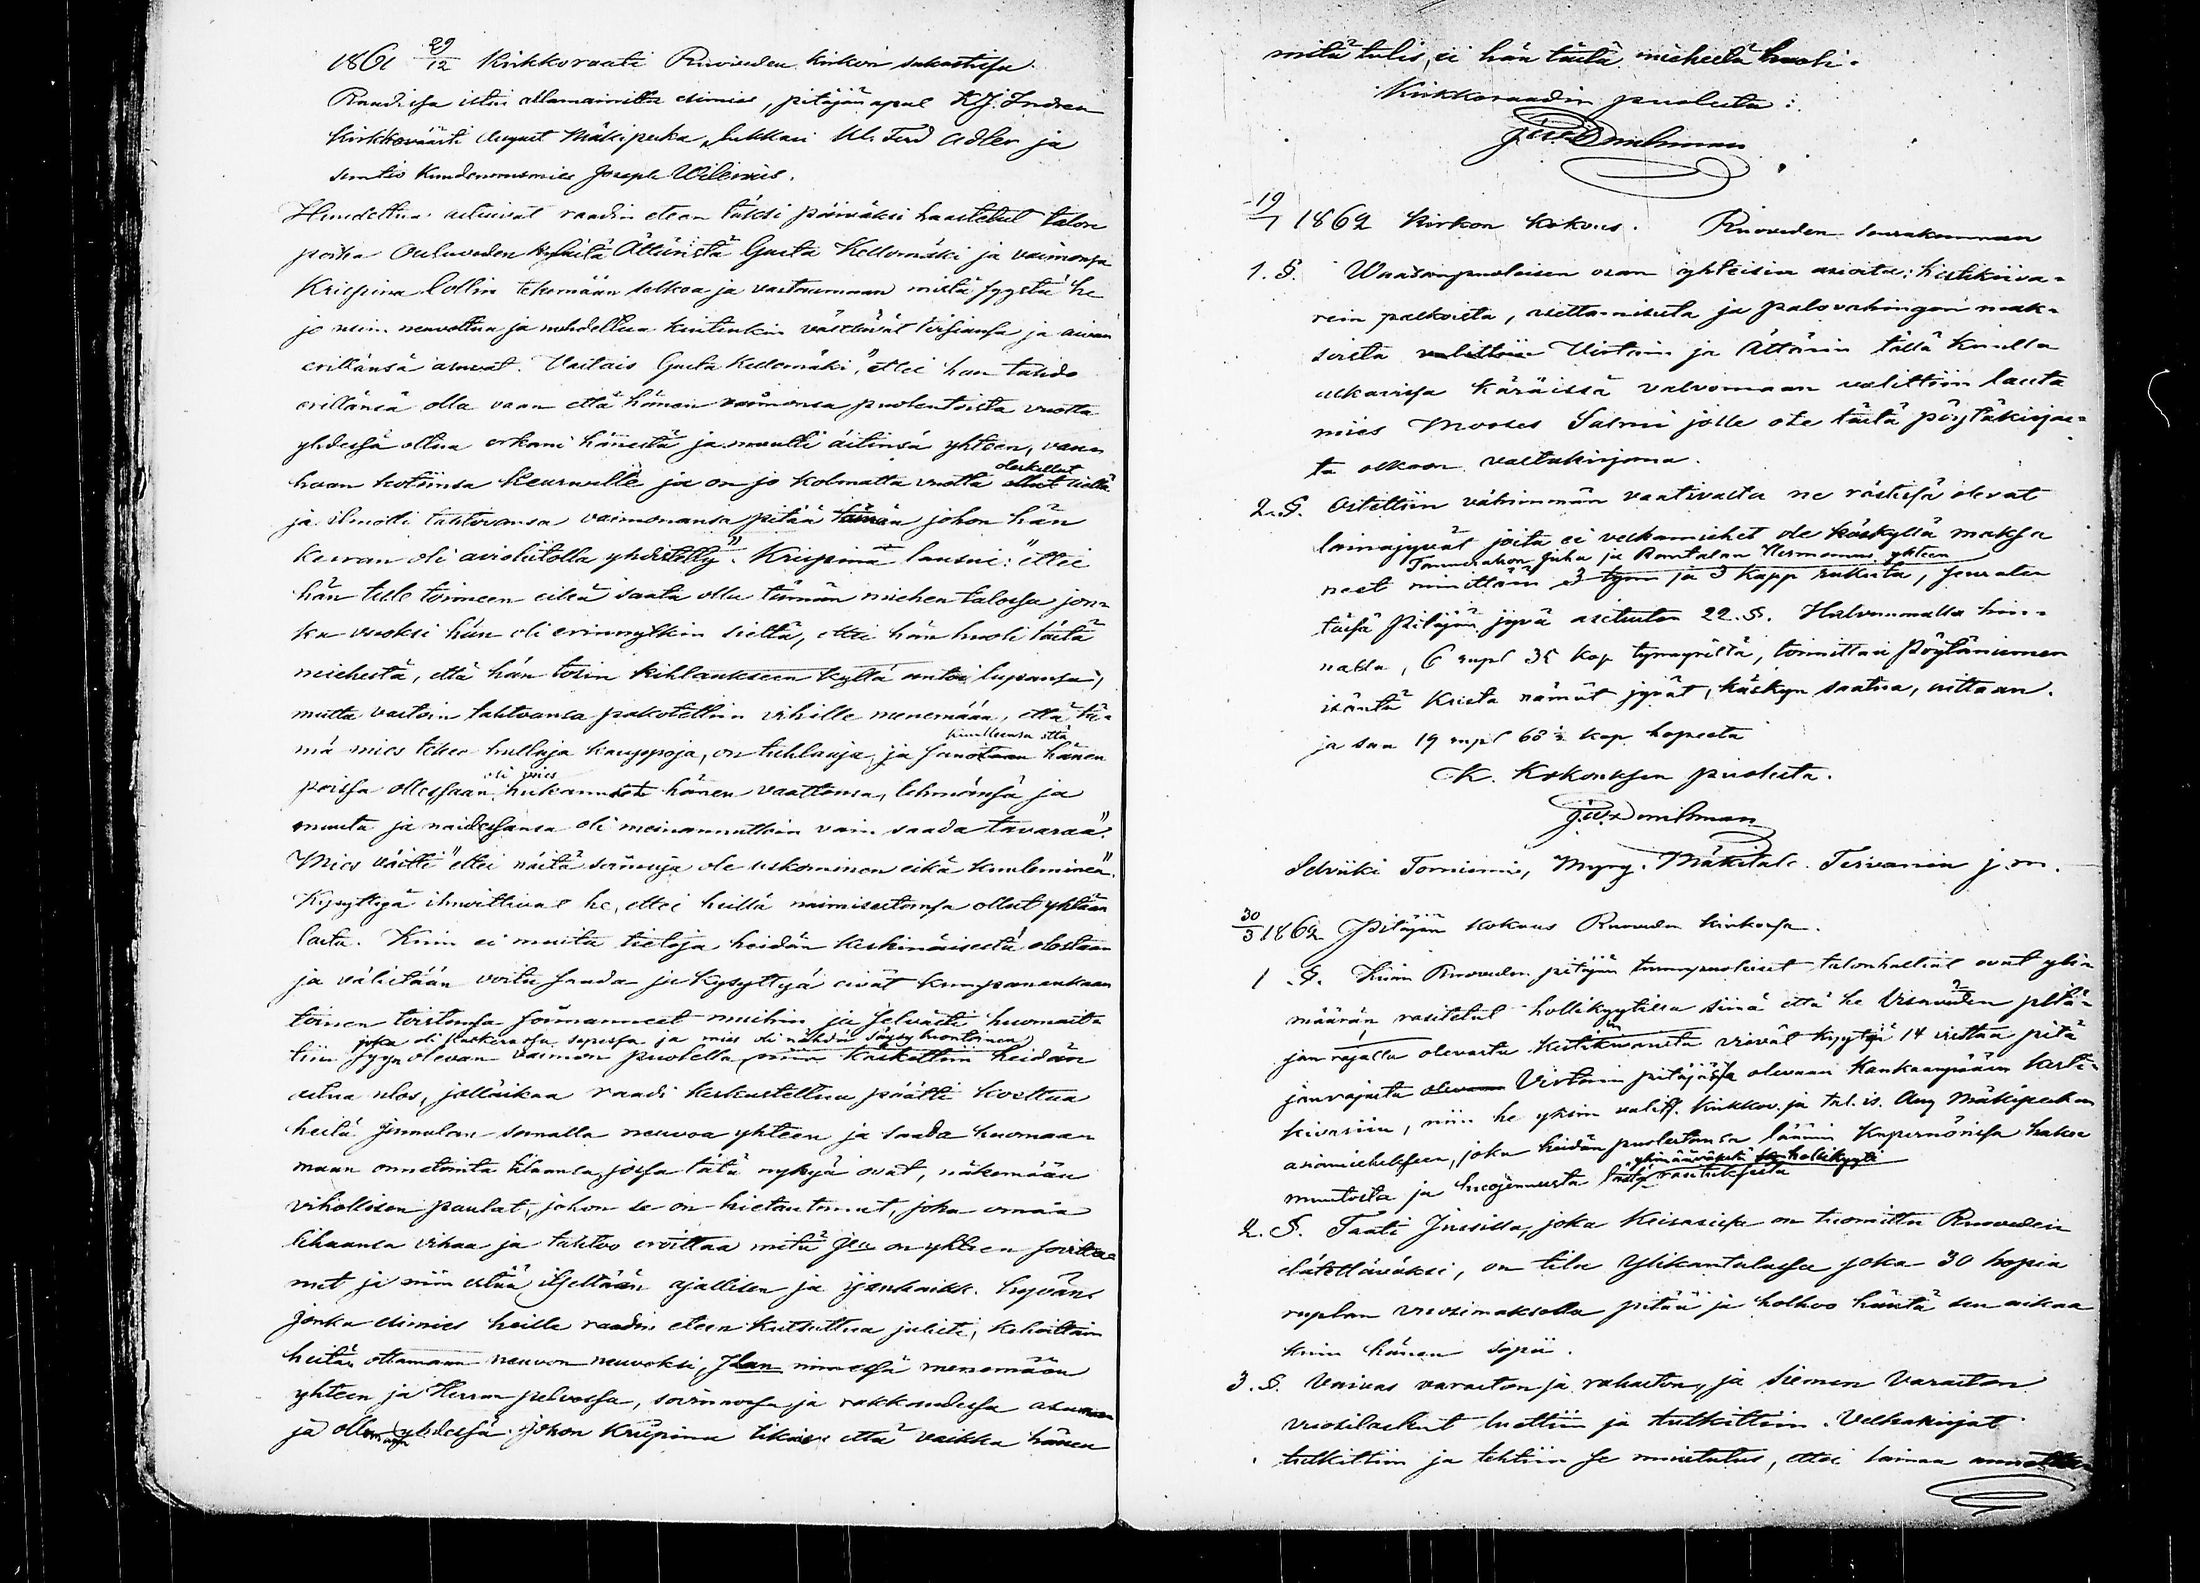 1861 29/12 Kirkkoraati Ruoveden kirkon sakastissa.
Raadissa istui allamainittu esimies, pitäjän apul K.J. Indren
kirkkovärti August Mäkipeska, lukkari Kl. Ferd Adler ja
suntio Kuudennusmies Joseph Wilenius.
Huudettua astuivat raadin eteen täksi päiväksi haastetut talon
poika Ouluveden kylästä Ättäristä Gusta Kellomäki ja vaimonsa
Krispina Lollin tekemään selkoa ja vastaamaan mistä syystä he
jo usein neuvottua ja nuhdeltua kuitenkin väsräävät tissiansa ja aivan
erillänsä asuvat. Vastais Gusta Kellomäki, "ettei hän tahdo
erillänsä olla vaan että hänen vaimonsa puolentoista vuotta
yhdessä oltua erkani hänestä ja muutti äitinsä yhteen, vaan
haan kotiinsa Keuruulle ja on jo kolmatta vuotta ollut oleskellut siellä
ja ilmotti tahtovansa vaimonansa pitää tämän johon hän
kerran oli avioliitolla yhdistetty". Krispina lausui: "ettei
hän tule toimeen eikä saata olla tämän miehen talossa jon-
ka vuoksi hän oli erinnytkin sieltä, ettei hän huoli tästä
miehestä, että hän tosin kihlaukseen kyllä antoi lupansa,
mutta vastoin tahtoansa pakotettiin vihille menemään, että tä-
mä mies tekee hulluja kauppoja, on tuhlaaja, ja sanotaan kuulleensa että hänen
poissa ollessaan oli mies hukannut hänen vaattensa, lehmänsä ja
muuta ja naidessansa oli meinannutkin vain saada tavaraa".
Mies väitti "ettei näitä sanoja ole uskominen eikä kuuleminen".
Kysyttyä ilmoittivat he, ettei heillä naimisestansa ollut yhtään
lasta. Kuin ei muita tietoja heidän keskinäisestä olostaan
ja välistään voitu saada ja kysyttyä eivät kumpanenkaan
toinen toistansa soimanneet muihin ja selvästi huomatta
tiin syyn olevan vaimon puolella joka oli paskirassa sopessa ja mies oli nähdä säysy luontoinen niin käskettiin heidän
astua ulos, jolläikaa raadi keskusteltua päätti koettaa
heitä Jumalan sanalla neuvoa yhteen ja saada huomaa-
maan onnetointa tilaansa, jossa tätä nykyä ovat, näkemään
vihollisen paulat, johon se on kietautunut, joka omaa
lihaansa vihaa ja tahtoo eroittaa mitä Jla on yhteen sovitta-
nut ja niin estää itseltään ajallisen ja ijankaikk. hyvän.
Jonka esimies heille raadin eteen kutsuttua julisti, kehoittain
heitä ottamaan neuvon neuvoksi, Jlan nimessä menemään
yhteen ja Herran pelvossa, sovinnossa ja rakkaudessa asumaan
ja olemaan yhdessä. Johon Krispina tikaisi että vaikka hänen
mitä tulis, ei hän tästä miehestä huoli.
Kirkkoraadin puolesta:
J.W. Durchman
19/1 1862 Kirkon kokous. Ruoveden seurakunnan
1. §. Waasanpuoleisen osan yhteisiä asioita: kestikiiva-
rein palkoista, asettamisesta ja palovahingon mak-
soista valittiin Virtain ja Ättärin tällä kuulla
alkavissa käräissä valvomaan valittiin lauta
mies Mooses Salmi jolle ote tästä pöytäkirjas-
ta olkoon valtakirjana.
2. §. Ostettiin vähimmän vaativalta ne rästissä olevat
lainajyvät joita ei velkamiehet ole käskyllä maksa
neet nimittäin Tannerahon Juha ja Rantalan Hermannus yhteen 3 tyn ja 3 kapp rukiita, seuraten
tässä pitäjän jyvä asetusten 22. §. Halvimmalla hin-
nalla, 6 rupl 35 kop tynnyriltä, toimittaa Pöytäniemen
isäntä Krista nämät jyvät, käskyn saatua, aittaan.
ja saa 19 rupl 68½ kop hopeeta
K. Kokouksen puolesta.
J.W. Durchman
Selviiki Torniemi, Myry. Mäkitalo. Tervaniin j.m.
30/3 1862 Pitäjän kokous Ruoveden kirkossa.
1. §. Kuin Ruoveden pitäjän tännepuoleiset talonhaltiat ovat yli-
määrän rasitetut hollikyytillä siinä että he Visuveden pitä-
jän rajalla olevasta kestikivarista vievät kyytiä 14 virstaa pitä
jän rajasta olevaan Virtain pitäjässä olevaan Kankaanpään kesti-
kivariin, niin he yksin valits. Kirkkov. ja tal. is. Aug Mäkipeskan
asiamieheksen, joka heidän puolestansa läänin Kuvernörissa hakee
muutosta ja huojennusta tästä ylimääräisestä hollikyyti rasituksesta
2. §. Taati Jussilla, joka Keisarissa on tuomittu Ruoveden
elätettäväksi, on tila Ylikantalassa joka 30 hopia
ruplan vuosimaksolla pitää ja holhoo häntä sen aikaa
kuin hänen sopii.
3. §. Vaivas varaston ja rahaston, ja siemen varaston
vuosilaskut luettiin ja tutkittiin. Velkakirjat
tutkittiin ja tehtiin se muistutus, ettei lainaa annettai-